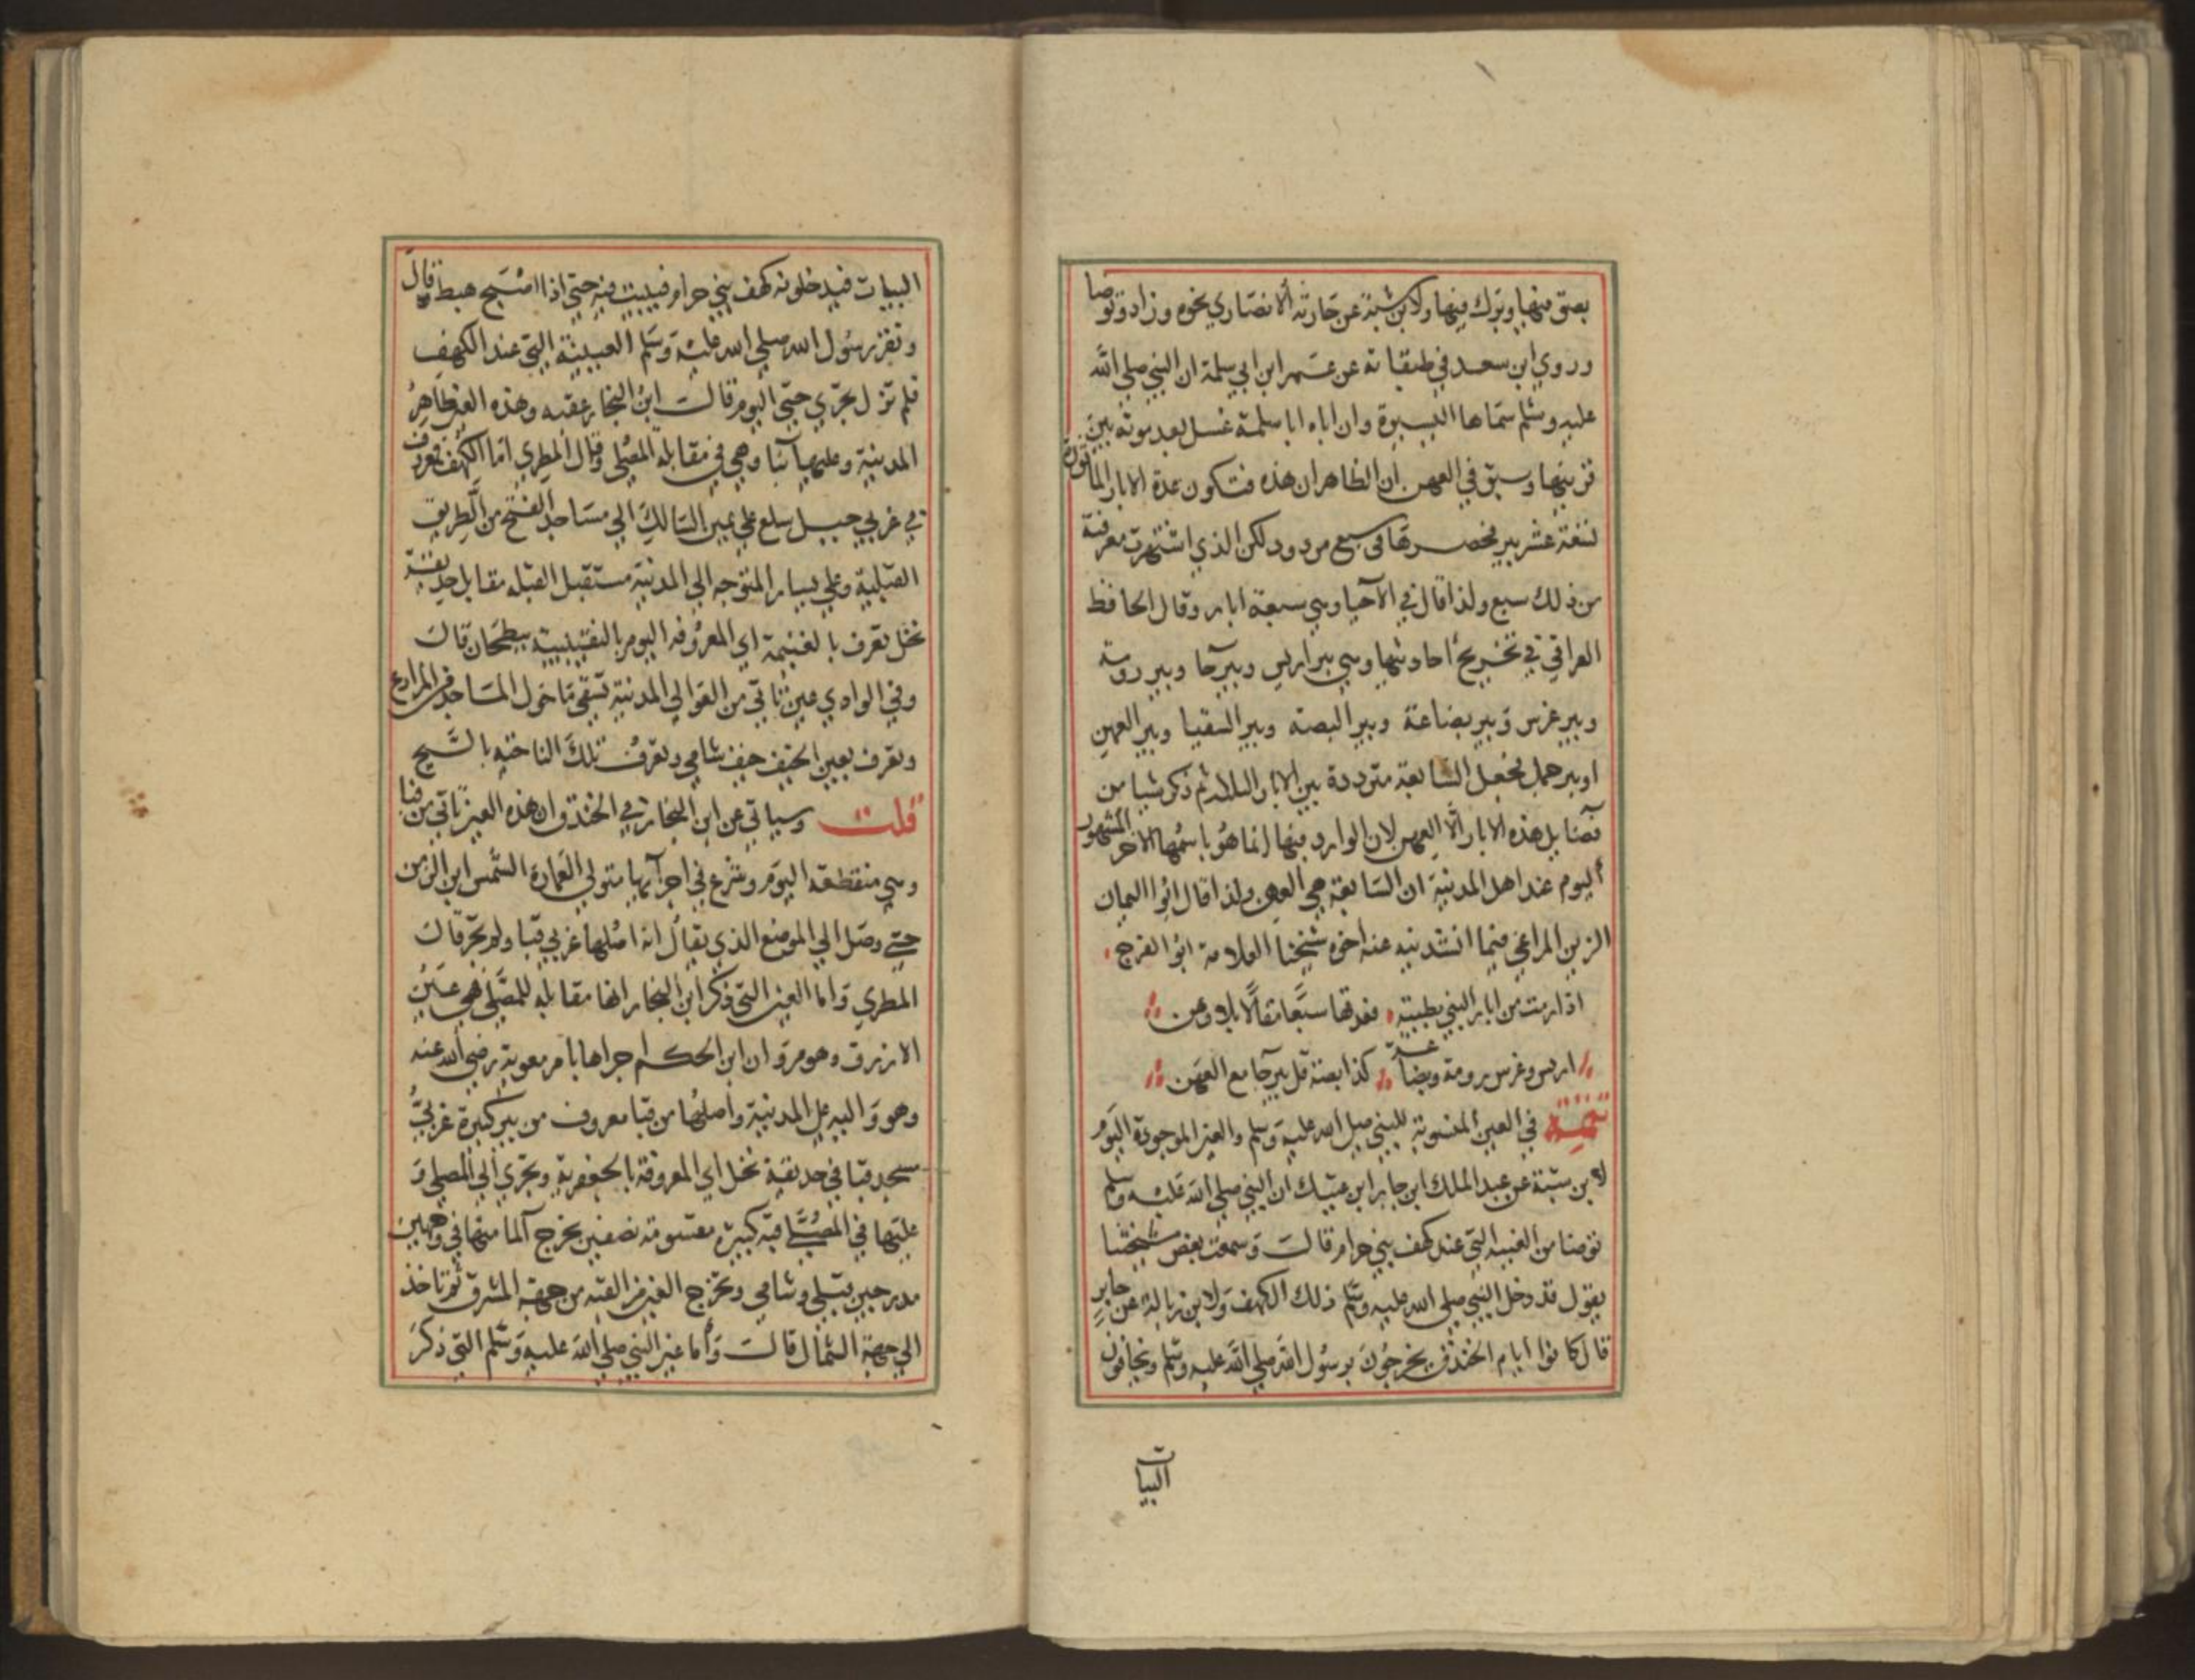 بصق فيها وبرك فيها ولابن شبة عن حارثة الانصاري نحوه وزاد وتوضا
وروي ابن سعد في طبقاته عن عمر ابن ابي سلمة ان النبي صلي الله
عليه وسلم سماها اليسيرة وان اباه ابا سلمة غسل بعد موته بين
قرينها وسبق في العهن ان الظاهر ان هذه فتكون عدة الابار الماثورة
تسعة عشر بير فحصرها في سبع مردود لكن الذي اشتهرت معرفته
من ذلك سبع ولذا قال في الاحيا وهي سبعة ابار وقال الحافظ
العراقي في تخريج احاديثها وهي بير اريس وبيرحا وبير رومة
وبير غرس وبير بضاعة وبير البصة وبير السقيا وبير العهن
او بير جمل فجعل السابعة مترددة بين الابار الثلاث ثم ذكر شيا من
فضايل هذه الابار الا العهن لان الوارد فيها انما هو باسمها الاخر المشهور
اليوم عند اهل المدينة ان السابعة هي العهن ولذا قال ابو اليمان
الزين المراغي فيما انشدنيه عنه اخوه شيخنا العلامة ابو الفرج
اذا رمت من ابار النبي بطيبة فعدتها سبع مقالا بلا وهن
اريس وغرس رومة وبضاعة كذا بصة قل بيرحا مع العهن
تتمة في العين المنسوبة للنبي صلي الله عليه وسلم والعين الموجودة اليوم
لابن شبة عن عبد الملك ابن جابر ابن عتيك ان النبي صلي الله عليه وسلم
توضا من العينية التي عند كهف بني حرام قالت وسمعت بعض مشيختنا
يقول قد دخل النبي صلي الله عليه وسلم ذلك الكهف ولابن زبالة عن جابر
قال كانوا ايام الخندق يخرجون برسول الله صلي الله عليه وسلم ويخافون
البيات
البيات فيدخلونه كهف بني حرام فيبيت فيه حتي اذا اصبح هبط قال
ونقز رسول الله صلي الله عليه وسلم العيينة التي عند الكهف
فلم تزل تجري حتي اليوم قالت ابن النجار عقبه وهذه العين ظاهر
المدينة وعليها بنا وهي في مقابلة المصلي وقال المطري اما الكهف فمعروف
في غربي جبل سلع علي يمين السالك الي مساجد الفتح من الطريق
القبلية وعلي يسار المتوجه الي المدينة مستقبل القبلة مقابل حديقة
نخل تعرف بالغنيمة اي المعروفة اليوم بالنقيبية ببطحان قالت
وفي الوادي عين تاتي من العوالي المدينة تسقي ما حول المساجد من المزارع
وتعرف بعين الخيف خيف شامي وتعرف تلك الناحية بالسيح
قلت وسياتي عن ابن النجار في الخندق ان هذه العين تاتي من قبا
وهي منقطعة اليوم وشرع في اجرايها متولي العمارة الشمس ابن الزمن
حتي وصل الي الموضع الذي يقال انه اصلها غربي قبا ولم تجر قال
المطري واما العين التي ذكر ابن النجار انها مقابلة للمصلي فهي عين
الازرق وهو مروان ابن الحكم اجراها بامر معوية رضي الله عنه
وهو واليه علي المدينة واصلها من قبا معروف من بير كبيرة غربي
مسجد قبا في حديقة نخل اي المعروفة بالجعفرية وتجري الي المصلي و
عليها في المصلي قبة كبيرة مقسومة نصفين يخرج الما منها في وجهين
مدرجين قبلي وشامي وتخرج العين من القبة من جهة المشرق ثم تاخذ
الي جهة الشمال قالت واما عين النبي صلي الله عليه وسلم التي ذكر